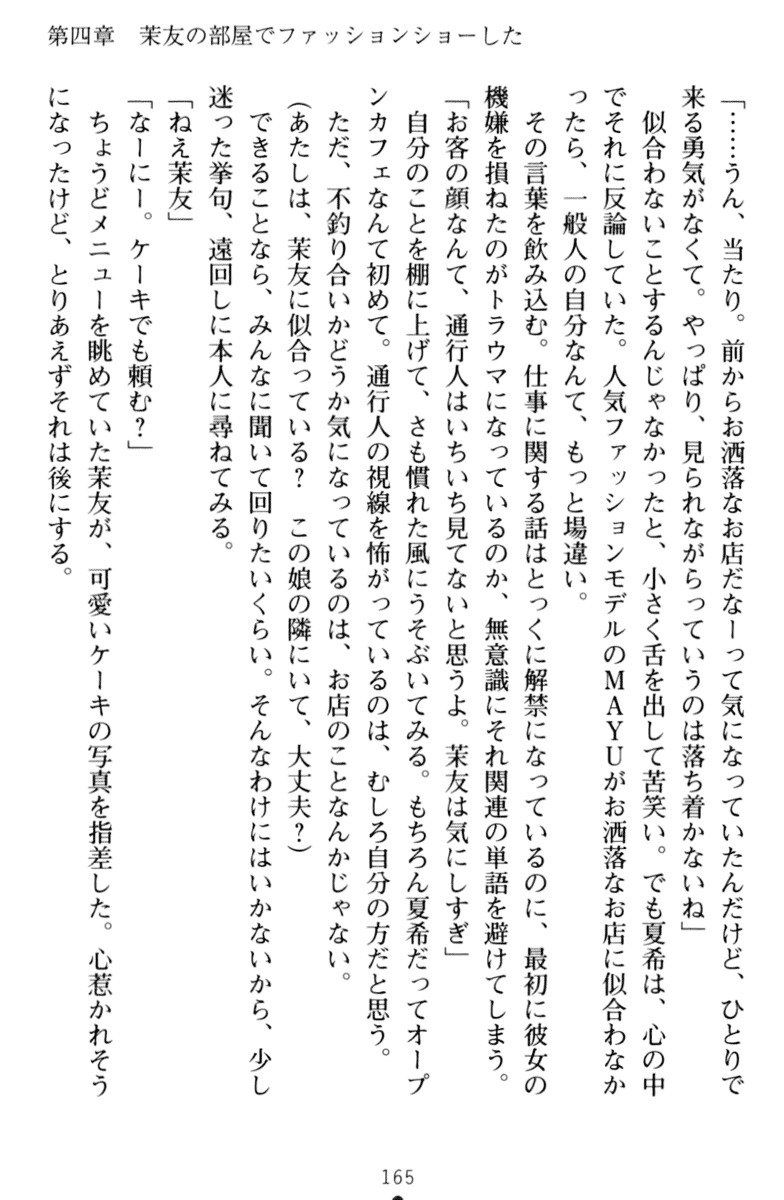 第四章　茉友の部屋でファッションショーした
「……うん、当たり。前からお洒落なお店だなーって気になっていたんだけど、ひとりで
来る勇気がなくて。やっぱり、見られながらっていうのは落ち着かないね」
　似合わないことするんじゃなかったと、小さく舌を出して苦笑い。でも夏希は、心の中
でそれに反論していた。人気ファッションモデルのＭＡＹＵがお洒落なお店に似合わなか
ったら、一般人の自分なんて、もっと場違い。
　その言葉を飲み込む。仕事に関する話はとっくに解禁になっているのに、最初に彼女の
機嫌を損ねたのがトラウマになっているのか、無意識にそれ関連の単語を避けてしまう。
「お客の顔なんて、通行人はいちいち見てないと思うよ。茉友は気にしすぎ」
　自分のことを棚に上げて、さも慣れた風にうそぶいてみる。もちろん夏希だってオープ
ンカフェなんて初めて。通行人の視線を怖がっているのは、むしろ自分の方だと思う。
　ただ、不釣り合いかどうか気になっているのは、お店のことなんかじゃない。
（あたしは、茉友に似合っている？　この娘の隣にいて、大丈夫？）
　できることなら、みんなに聞いて回りたいくらい。そんなわけにはいかないから、少し
迷った挙句、遠回しに本人に尋ねてみる。
「ねえ茉友」
「なーにー。ケーキでも頼む？」
　ちょうどメニューを眺めていた茉友が、可愛いケーキの写真を指差した。心惹かれそう
になったけど、とりあえずそれは後にする。
165